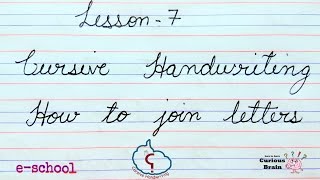 Lesson-7
Cursive Handwriting
How to join letters
e-school
Curious
Brain